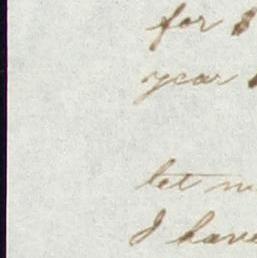 for $
year
let
I have